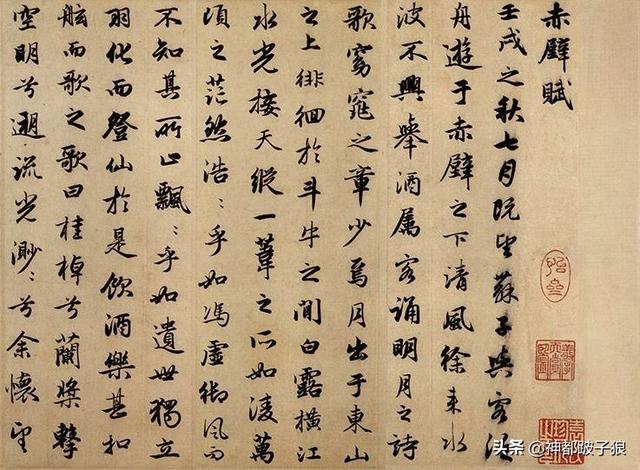 赤壁賦
壬戌之秋七月既望蘇子與客泛
舟遊于赤壁之下清風徐来水
波不興舉酒属客誦明月之詩
歌窈窕之章少焉月出于東山
之上徘徊於斗牛之間白露横江
水光接天縱一葦之所如淩萬
頃之茫然浩〻乎如馮虛御風而
不知其所止飄〻乎如遺世獨立
羽化而登仙於是飲酒樂甚扣
舷而歌之歌曰桂棹兮蘭槳擊
空明兮遡流光渺〻兮余懷望
头条 @神都跛子狼